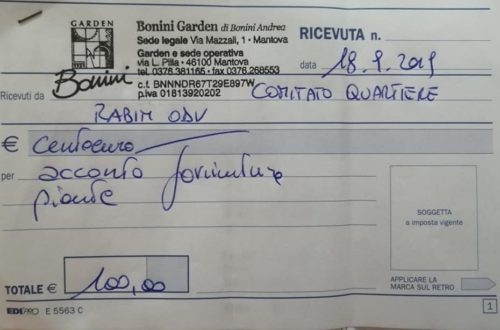 GARDEN
Bonini
Bonini Garden di Bonini Andrea
Sede legale Via Mazzali, 1 • Mantova
Garden e sede operativa
via L. Pilla • 46100 Mantova
tel. 0376.381165 • fax 0376.268553
c.f. BNNNDR67T29E897W
p.iva 01813920202
RICEVUTA n.
data 18.9.2019
Ricevuti da COMITATO QUARTIERE
RABIM ODV
€ centoeuro
per acconto fornitura
piante
SOGGETTA
a imposta vigente
TOTALE € 100,00
APPLICARE LA
MARCA SUL RETRO
EDIPRO E 5563 C
1